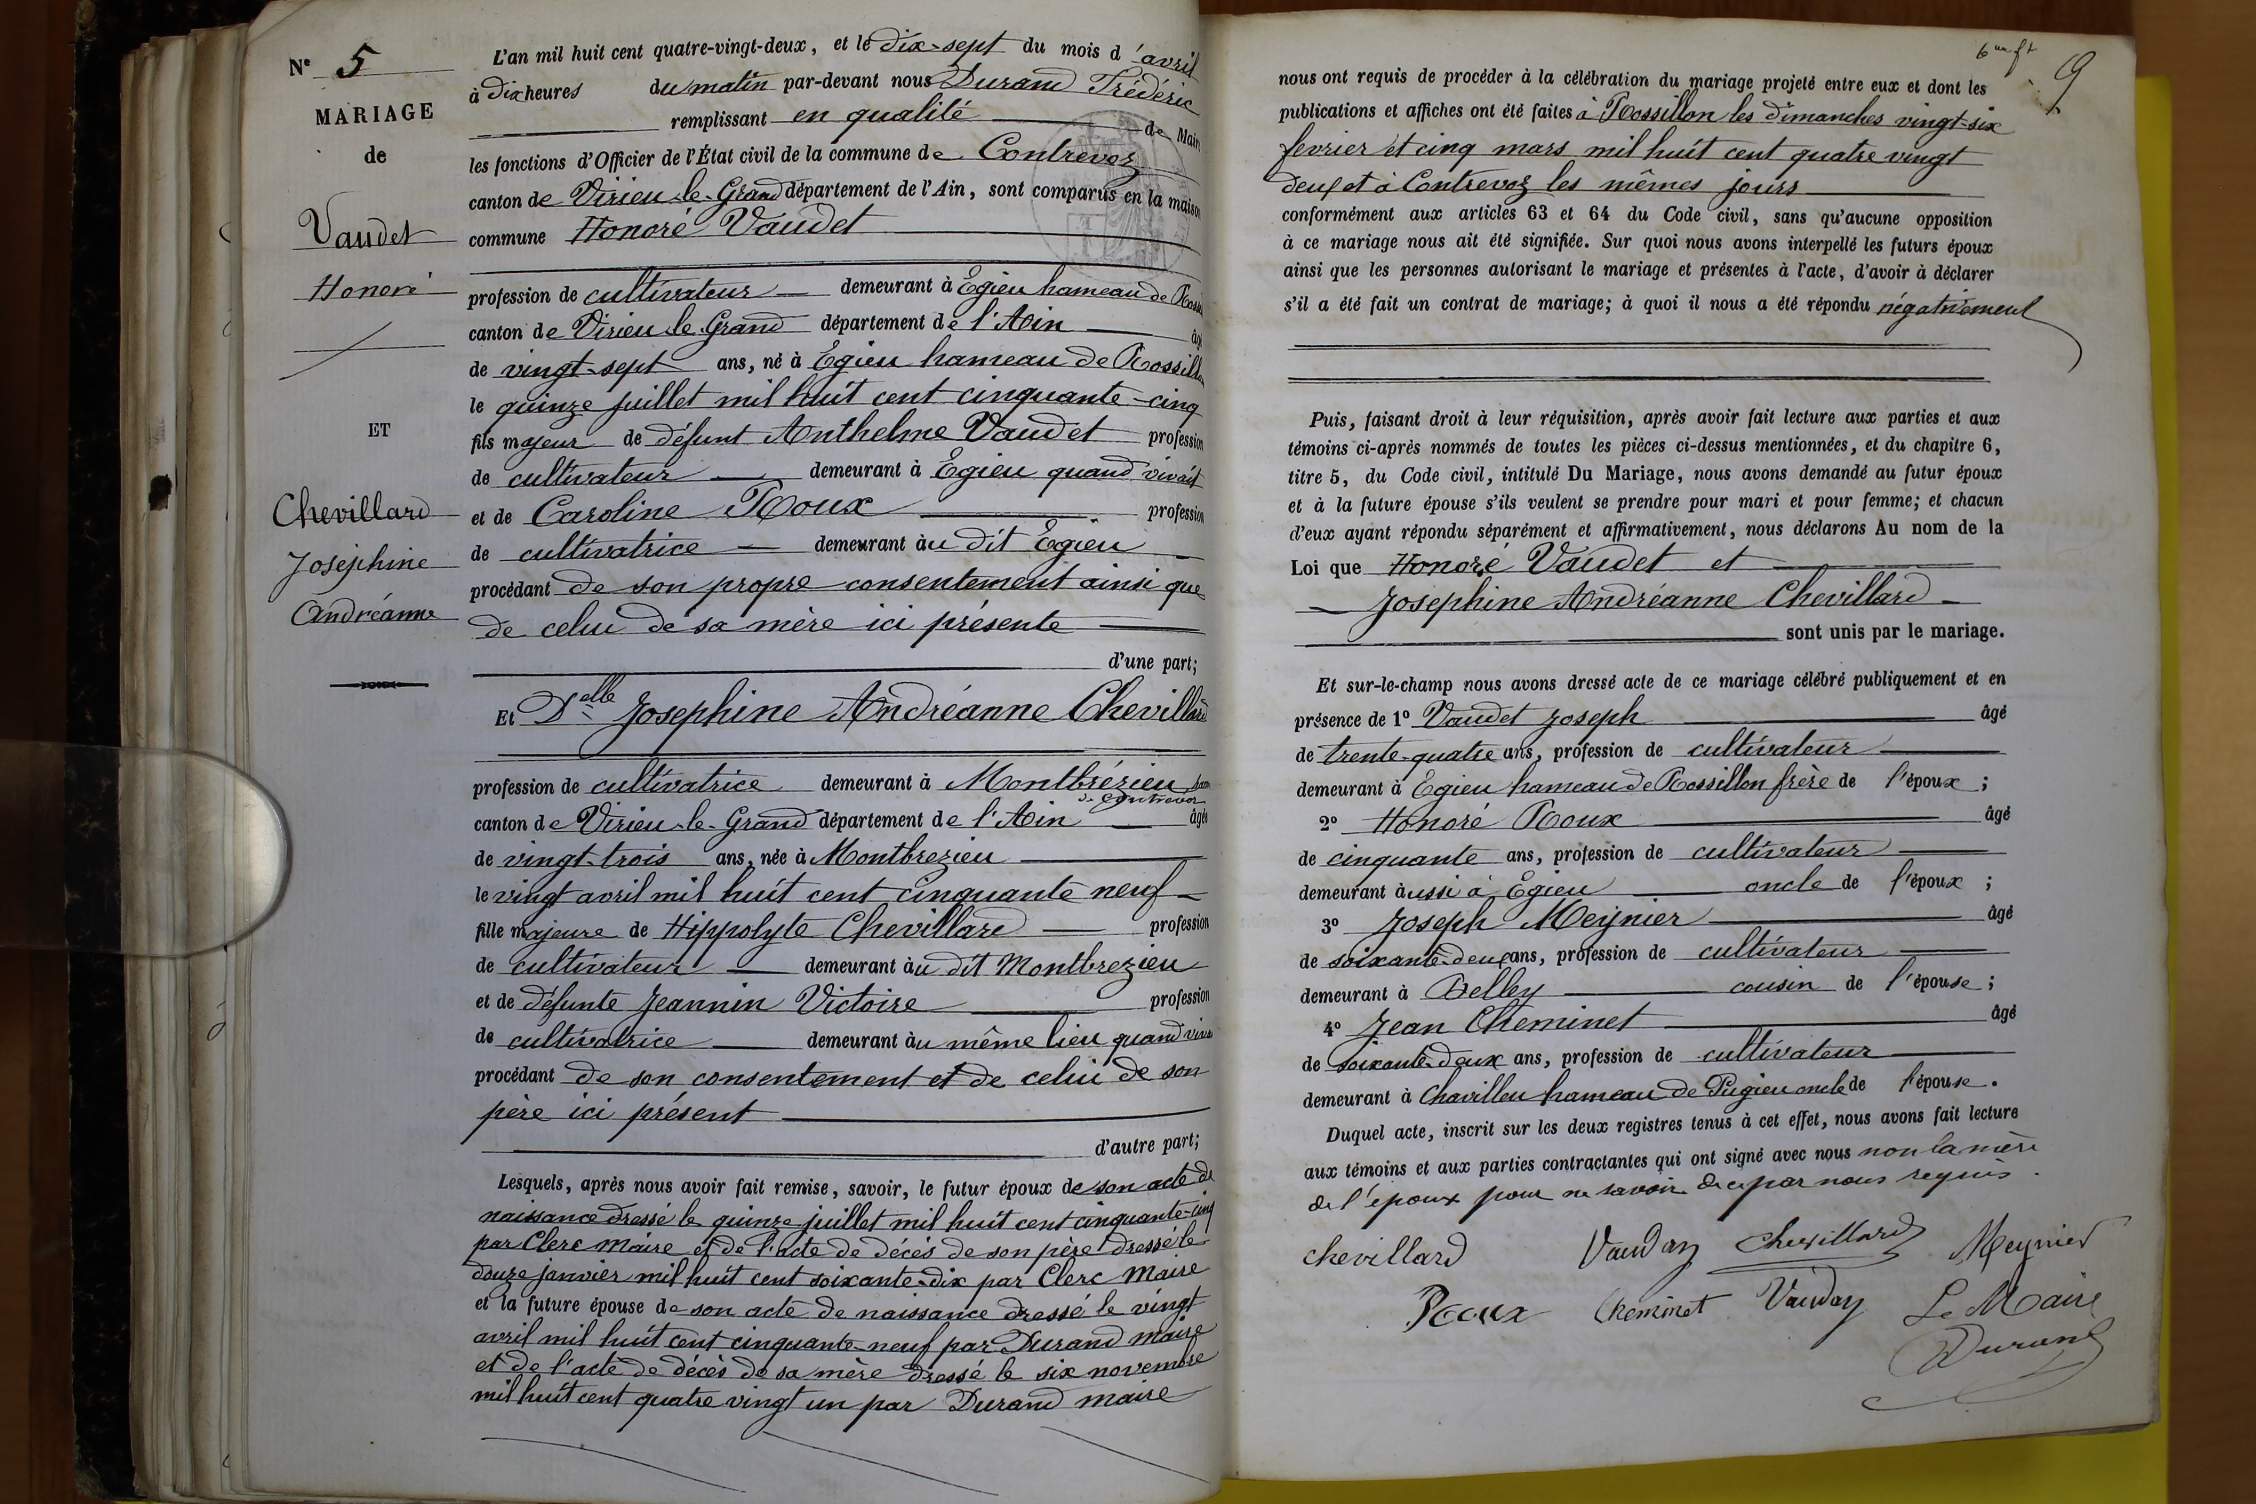 Nº 5
MARIAGE
de
Vaudet
Honoré
ET
Chevillard
Joséphine
Andréanne
L'an mil huit cent quatre-vingt-deux, et le dix-sept du mois d'avril
à dix heures du matin par-devant nous Durand Frédéric
remplissant en qualité de Maire
les fonctions d'Officier de l'État civil de la commune de Contrevoz
canton de Virieu-le-Grand département de l'Ain, sont comparus en la maison
commune Honoré Vaudet
profession de cultivateur demeurant à Egieu hameau de Rossi
canton de Virieu-le-Grand département de l'Ain âgé
de vingt-sept ans, né à Egieu hameau de Rossillon
le quinze juillet mil huit cent cinquante-cinq
fils majeur de défunt Anthelme Vaudet profession
de cultivateur demeurant à Egieu quand vivait
et de Caroline Roux profession
de cultivatrice demeurant àu dit Egieu
procédant de son propre consentement ainsi que
de celui de sa mère ici présente
d'une part;
Et Delle Josephine Andréanne Chevillard
profession de cultivatrice demeurant à Montbrézieu ham
de Contrevoz
canton de Virieu-le-Grand département de l'Ain âgée
de vingt-trois ans, née à Montbrezieu
le vingt avril mil huit cent cinquante neuf
fille majeure de Hippolyte Chevillard profession
de cultivateur demeurant àu dit Montbrezieu
et de défunte Jeannin Victoire profession
de cultivatrice demeurant àu même lieu quand viva
procédant de son consentement et de celui de son
père ici présent
d'autre part;
Lesquels, après nous avoir fait remise, savoir, le futur époux de son acte de
naissance dressé le quinze juillet mil huit cent cinquante-cinq
par Clerc Maire et de l'acte de décès de son père dressé le
douze janvier mil huit cent soixante-dix par Clerc Maire
et la future épouse de son acte de naissance dressé le vingt
avril mil huit cent cinquante-neuf par Durand maire
et de l'acte de décès de sa mère dressé le six novembre
mil huit cent quatre vingt un par Durand maire
9
nous ont requis de procéder à la célébration du mariage projeté entre eux et dont les
publications et affiches ont été faites à Rossillon les dimanches vingt-six
fevrier et cinq mars mil huit cent quatre vingt
deux et à Contrevoz les mêmes jours
conformément aux articles 63 et 64 du Code civil, sans qu'aucune opposition
à ce mariage nous ait été signifiée. Sur quoi nous avons interpellé les futurs époux
ainsi que les personnes autorisant le mariage et présentes à l'acte, d'avoir à déclarer
s'il a été fait un contrat de mariage; à quoi il nous a été répondu négativement
Puis, faisant droit à leur réquisition, après avoir fait lecture aux parties et aux
témoins ci-après nommés de toutes les pièces ci-dessus mentionnées, et du chapitre 6,
titre 5, du Code civil, intitulé Du Mariage, nous avons demandé au futur époux
et à la future épouse s'ils veulent se prendre pour mari et pour femme; et chacun
d'eux ayant répondu séparément et affirmativement, nous déclarons Au nom de la
Loi que Honoré Vaudet et
Josephine Andréanne Chevillard
sont unis par le mariage.
Et sur-le-champ nous avons dressé acte de ce mariage célébré publiquement et en
présence de 1º Vaudet Joseph âgé
de trente-quatre ans, profession de cultivateur
demeurant à Egieu hameau de Rossillon frère de l'époux ;
2º Honoré Roux âgé
de cinquante ans, profession de cultivateur
demeurant àussi à Egieu oncle de l'époux ;
3º Joseph Meynier âgé
de soixante-deux ans, profession de cultivateur
demeurant à Belley cousin de l'épouse ;
4º Jean Cheminet âgé
de soixante-deux ans, profession de cultivateur
demeurant à Chavilleu hameau de Pugieu oncle de l'épouse.
Duquel acte, inscrit sur les deux registres tenus à cet effet, nous avons fait lecture
aux témoins et aux parties contractantes qui ont signé avec nous non la mère
de l'époux pour ne savoir de ce par nous requis.
chevillard Vauday Chevillard Meynier
Roux Cheminet Vauday Le Maire
Durand